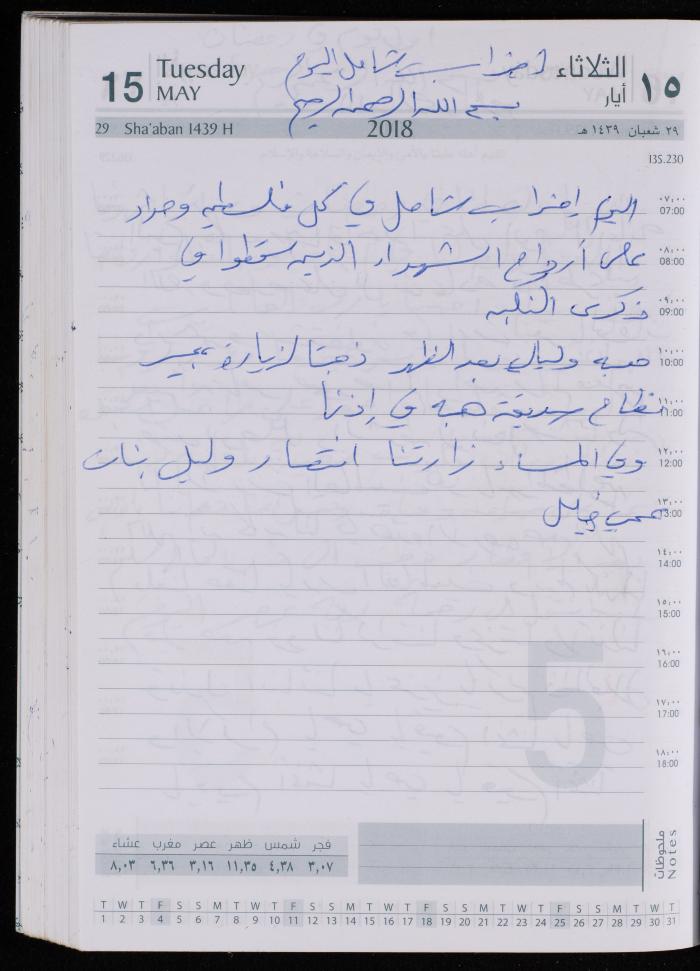 15 Tuesday MAY إضراب شامل اليوم الثلاثاء أيار ١٥
بسم الله الرحمن الرحيم
29 Sha'aban 1439 H 2018 ٢٩ شعبان ١٤٣٩ هـ
135.230
٠٧:٠٠
07:00
اليوم إضراب شامل في كل فلسطين وحداد
٠٨:٠٠
08:00
على أرواح الشهداء الذين سقطوا في
٠٩:٠٠
09:00
ذكرى النكبه
١٠:٠٠
10:00
هبه وليال بعد الظهر ذهبتا لزيارة عبير
١١:٠٠
11:00
صديقة هبه في إذنا
١٢:٠٠
12:00
وفي المساء زارتنا انتصار وليلى بنات
١٣:٠٠
13:00
عمي
١٤:٠٠
14:00
١٥:٠٠
15:00
١٦:٠٠
16:00
١٧:٠٠
17:00
١٨:٠٠
18:00
5
فجر شمس ظهر عصر مغرب عشاء
٣,٠٧ ٤,٣٨ ١١,٣٥ ٣,١٦ ٦,٣٦ ٨,٠٣
ملحوظات
Notes
T W T F S S M T W T F S S M T W T F S S M T W T F S S M T W T
1 2 3 4 5 6 7 8 9 10 11 12 13 14 15 16 17 18 19 20 21 22 23 24 25 26 27 28 29 30 31